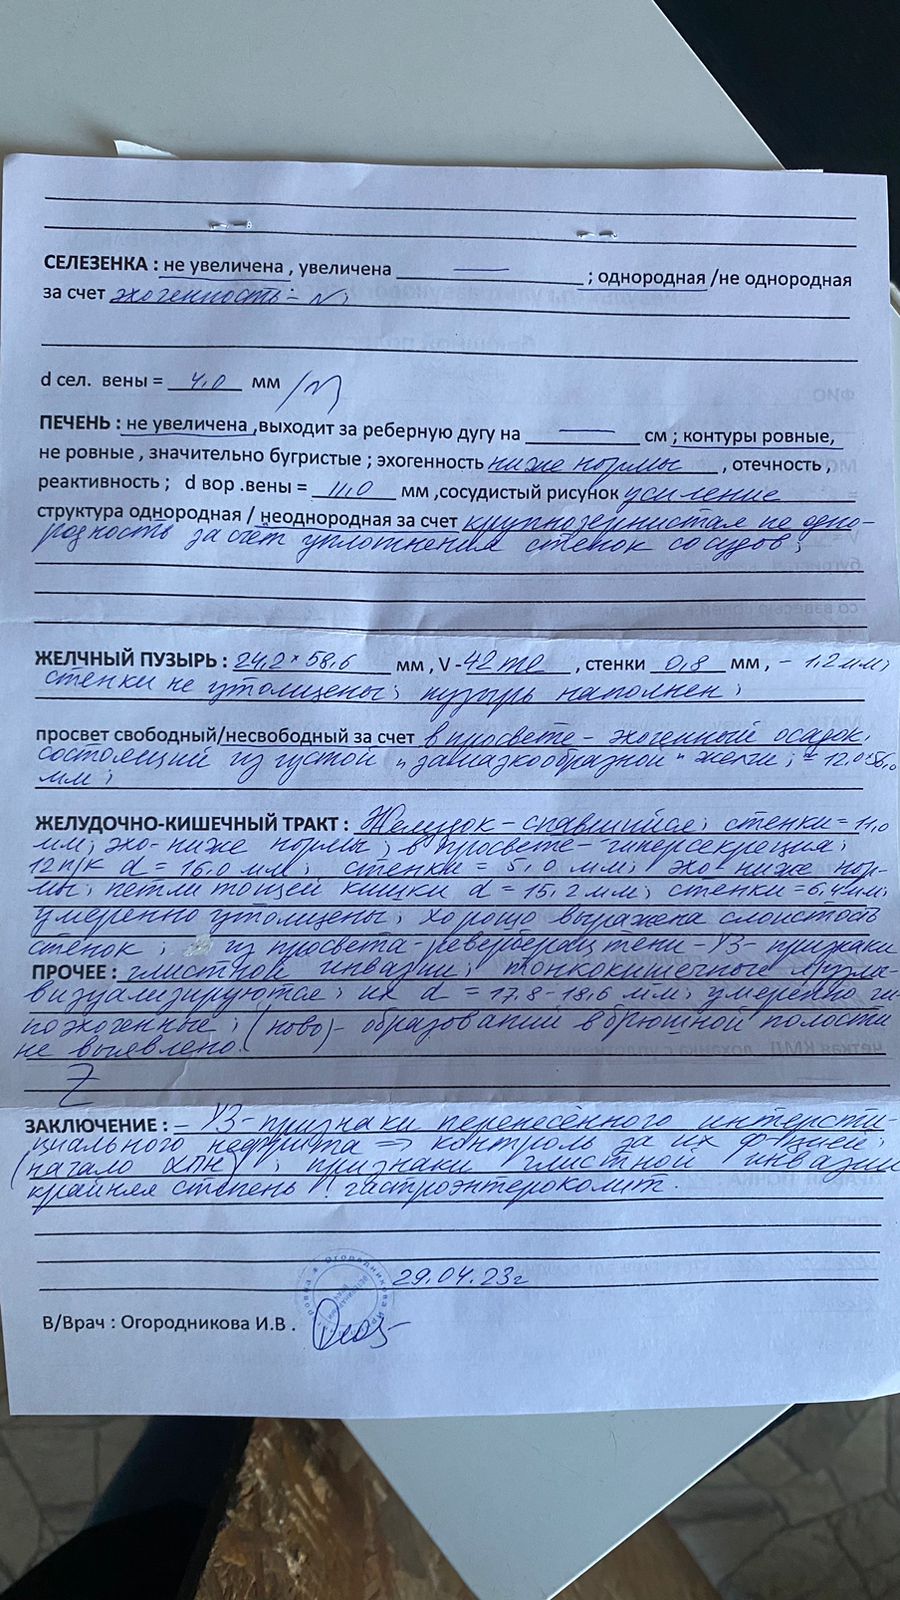 СЕЛЕЗЕНКА : не увеличена , увеличена ; однородная /не однородная
за счет эхогенность - N;
d сел. вены = 4,0 мм /N
ПЕЧЕНЬ : не увеличена ,выходит за реберную дугу на см ; контуры ровные,
не ровные , значительно бугристые ; эхогенность ниже нормы , отечность ,
реактивность ; d вор .вены = 11,0 мм ,сосудистый рисунок усиление
структура однородная / неоднородная за счет крупнозернистая не одно-
родность за счет уплотнения стенок сосудов;
ЖЕЛЧНЫЙ ПУЗЫРЬ : 24,2 × 58,6 мм , V - 42 ml , стенки 0,8 мм , - 1,2 мм;
стенки не утолщены; пузырь наполнен;
просвет свободный/несвободный за счет в просвете - эхогенный осадок,
состоящий из густой "замазкообразной" желчи;
мм;
ЖЕЛУДОЧНО-КИШЕЧНЫЙ ТРАКТ : Желудок - спавшийся; стенки = 11,0
мм; эхо-ниже нормы; в просвете - гиперсекреция;
12 п/к d = 16,0 мм; стенки = 5,0 мм; эхо ниже нор-
мы; петли тощей кишки d = 15,2 мм; стенки = 6,4 мм;
умеренно утолщены; хорошо выражена слоистость
стенок ; из просвета - реверберац тени - УЗ - признаки
ПРОЧЕЕ : глистной инвазии;
визуализируются; их d = 17,8 - 18,6 мм; умеренно ги-
поэхогенные; (ново) - образований в брюшной полости
не выявлено.
Z
ЗАКЛЮЧЕНИЕ : - УЗ - признаки перенесённого интерсти-
циального нефрита => контроль за их ф-цией;
(начало ХПН) ; признаки глистной инвазии
крайняя степень ! гастроэнтероколит.
29.04.23г
В/Врач : Огородникова И.В .